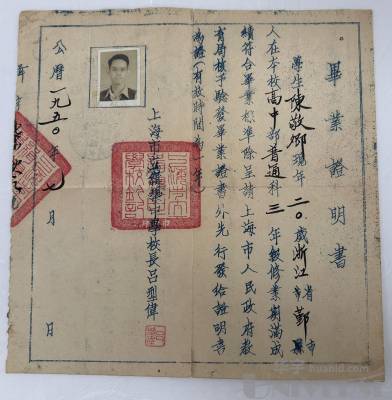 畢業證明書
學生陳敬卿現年二〇歲浙江省市鄞縣市
人在本校高中部普通科三年級修業期滿成
績符合畢業標準除呈請上海市人民政府教
育局核予驗發畢業證書外先行發給證明書
為證(有效時間為一年)
上海市立緝椝中學校長呂型偉
公曆一九五〇年七月 日